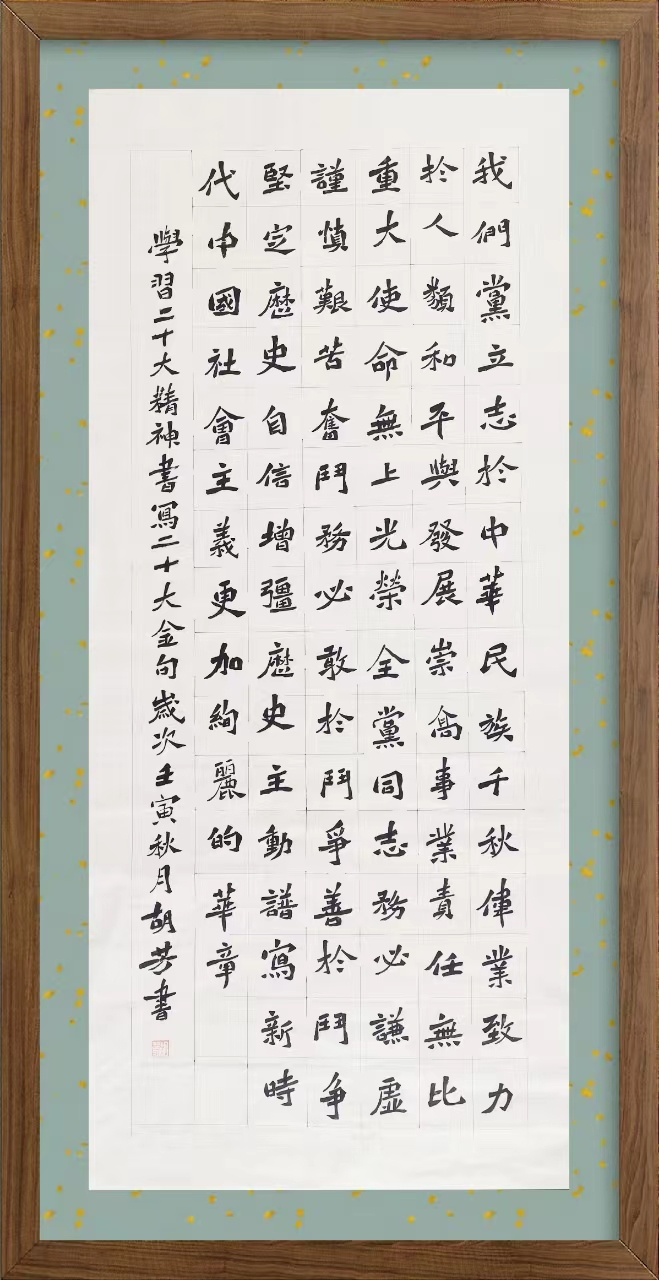 我們黨立志於中華民族千秋偉業致力
於人類和平與發展崇高事業責任無比
重大使命無上光榮全黨同志務必謙虛
謹慎艱苦奮鬥務必敢於鬥爭善於鬥争
堅定歷史自信增彊歷史主動譜寫新時
代中國社會主義更加絢麗的華章
學習二十大精神書寫二十大金句歲次壬寅秋月胡芳書